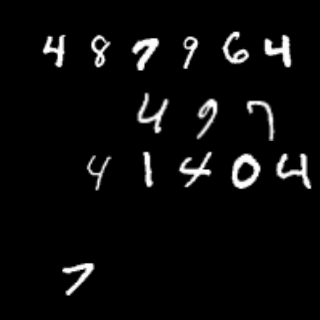 487964
497
41404
7